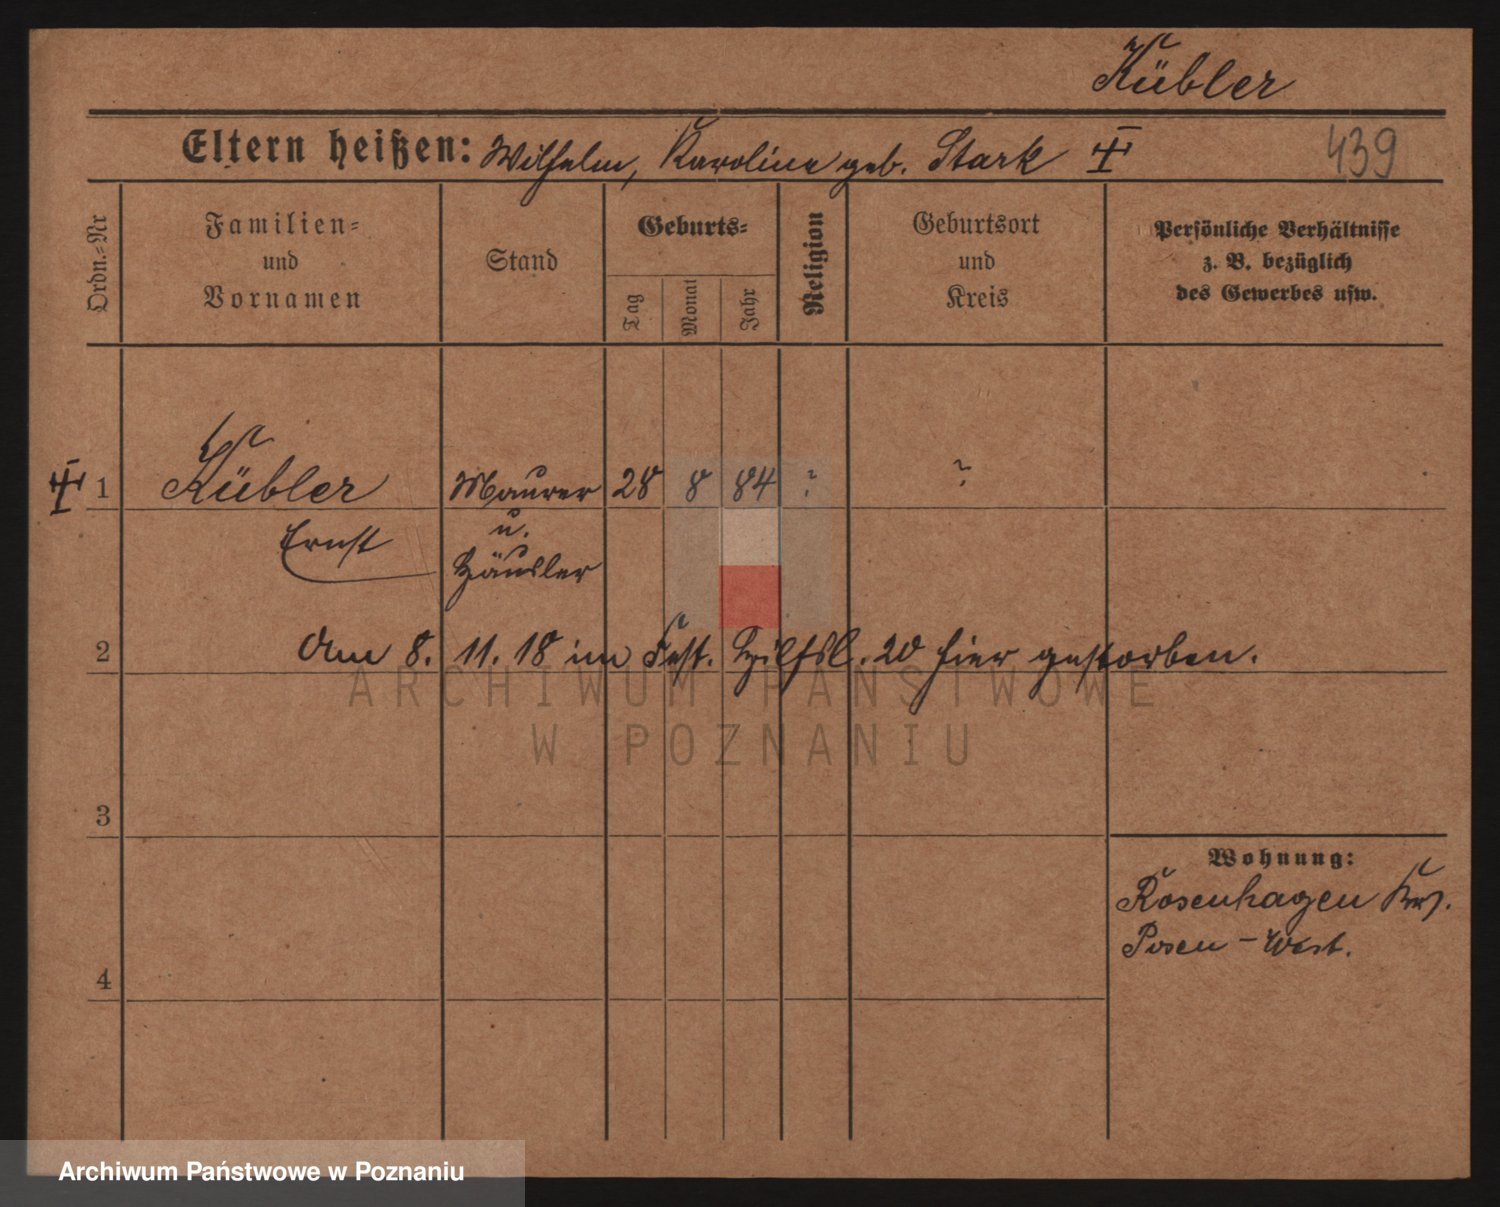 Kübler
Eltern heißen: Wilhelm, Karoline geb. Stark
439
Ordn.=Nr
Familien=
und
Vornamen
Stand
Geburts=
Tag
Monat
Jahr
Religion
Geburtsort
und
Kreis
Persönliche Verhältnisse
z. B. bezüglich
des Gewerbes usw.
1 Kübler Maurer 28 8 84 ? ?
Ernst u.
Häusler
2 Am 8. 11. 18 im Fest. Hilfsl. 20 hier gestorben.
ARCHIWUM PAŃSTWOWE
W POZNANIU
3
Wohnung:
Rosenhagen Krs.
Posen - West.
4
Archiwum Państwowe w Poznaniu